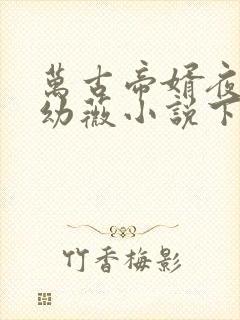 萬古帝婿夜
幼薇小説下
竹香梅影